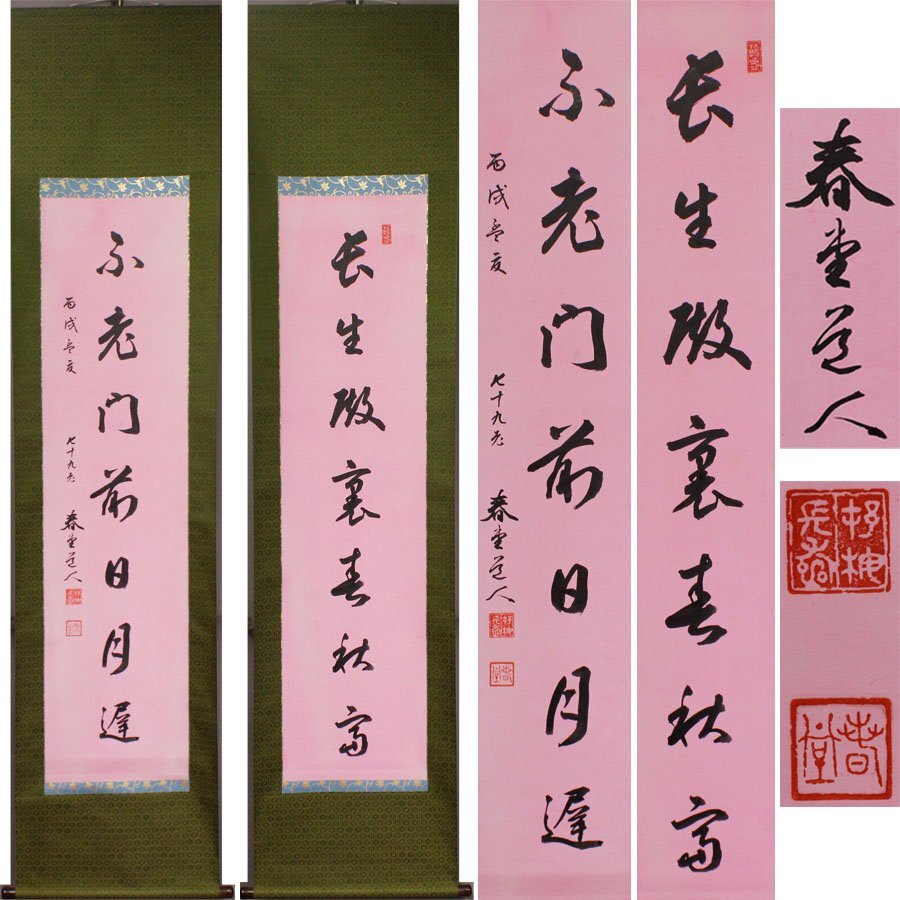 長生殿裏春秋富
不老門前日月遅
丙戌 夏 七十九老 春堂道人
長生殿裏春秋富
不老門前日月遅
丙戌 夏 七十九老 春堂道人
春堂道人
春堂